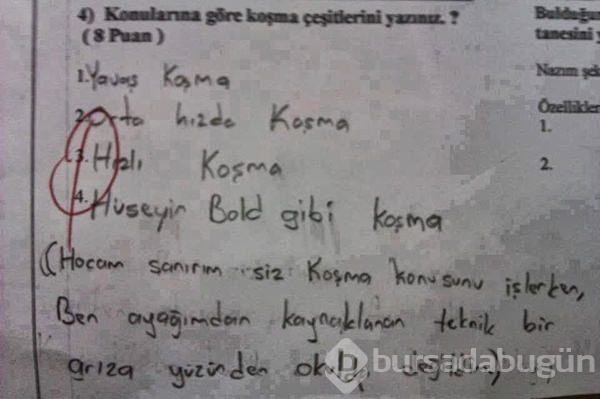 4) Konularına göre koşma çeşitlerini yazınız. ?
( 8 Puan )
1. Yavaş Koşma
2. Orta hızda Koşma
3. Hızlı Koşma
4. Hüseyin Bold gibi koşma
((Hocam sanırım siz Koşma konusunu işlerken,
Ben ayağımdan kaynaklanan teknik bir
arıza yüzünden
bursadabugün
tanesini
Nazım şek
Özellikler
1.
2.